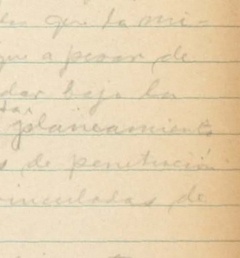 les que la mi-
que a pesar de
dar bajo la
tas
planeamiento
s de penetración
vinculadas de